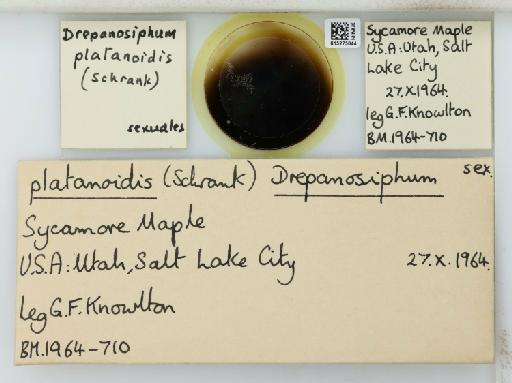 Drepanosiphum
platanoidis
(Schrank)
sexuales
Sycamore Maple
U.S.A: Utah, Salt
Lake City
27.X.1964.
leg G.F. Knowlton
BM.1964-710
platanoidis (Schrank) Drepanosiphum sex.
Sycamore Maple
U.S.A: Utah, Salt Lake City 27.X.1964.
leg G.F. Knowlton
BM.1964-710